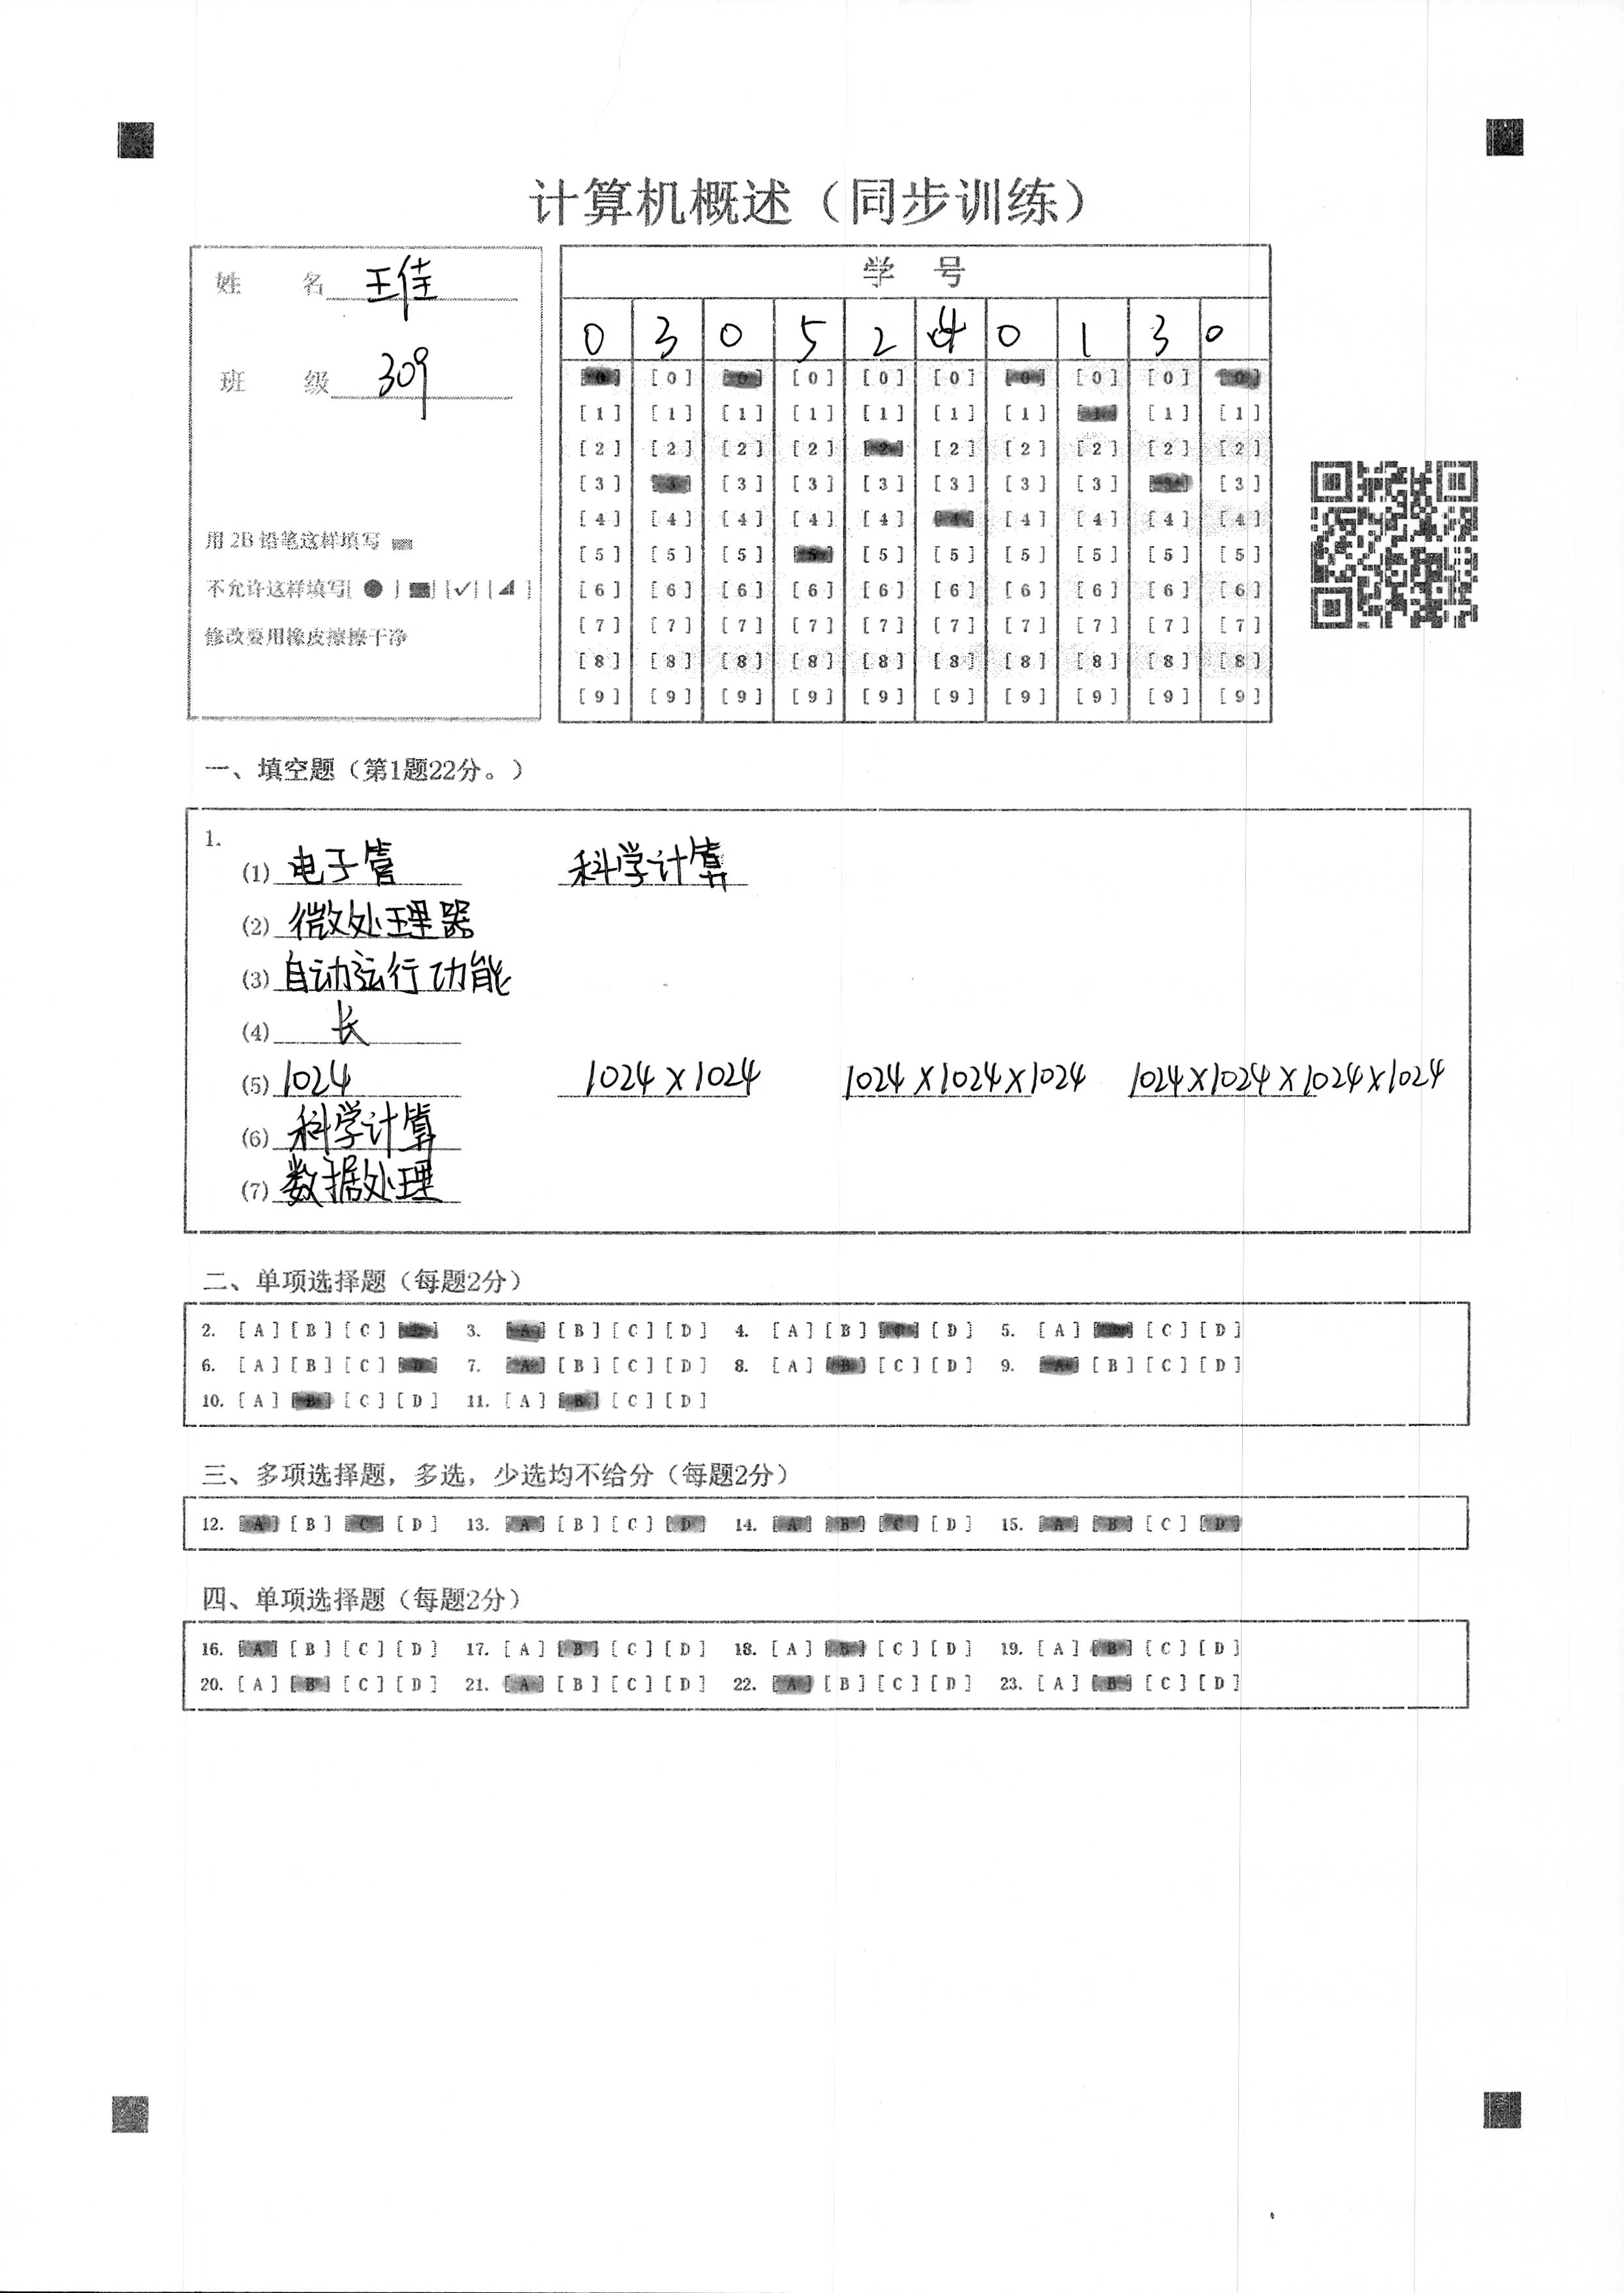 计算机概述（同步训练）
姓 名 王佳
班 级 309
用 2B 铅笔这样填写
不允许这样填写[ ● ] [■] [✓] [◢]
修改要用橡皮擦擦干净
学 号
0 3 0 5 2 4 0 1 3 0
[0] [0] [0] [0] [0] [0] [0] [0] [0] [0]
[1] [1] [1] [1] [1] [1] [1] [1] [1] [1]
[2] [2] [2] [2] [2] [2] [2] [2] [2] [2]
[3] [3] [3] [3] [3] [3] [3] [3] [3] [3]
[4] [4] [4] [4] [4] [4] [4] [4] [4] [4]
[5] [5] [5] [5] [5] [5] [5] [5] [5] [5]
[6] [6] [6] [6] [6] [6] [6] [6] [6] [6]
[7] [7] [7] [7] [7] [7] [7] [7] [7] [7]
[8] [8] [8] [8] [8] [8] [8] [8] [8] [8]
[9] [9] [9] [9] [9] [9] [9] [9] [9] [9]
一、填空题（第1题22分。）
1.
(1) 电子管 科学计算
(2) 微处理器
(3) 自动运行功能
(4) 长
(5) 1024 1024×1024 1024×1024×1024 1024×1024×1024×1024
(6) 科学计算
(7) 数据处理
二、单项选择题（每题2分）
2. [A] [B] [C] [D] 3. [A] [B] [C] [D] 4. [A] [B] [C] [D] 5. [A] [B] [C] [D]
6. [A] [B] [C] [D] 7. [A] [B] [C] [D] 8. [A] [B] [C] [D] 9. [A] [B] [C] [D]
10. [A] [B] [C] [D] 11. [A] [B] [C] [D]
三、多项选择题，多选，少选均不给分（每题2分）
12. [A] [B] [C] [D] 13. [A] [B] [C] [D] 14. [A] [B] [C] [D] 15. [A] [B] [C] [D]
四、单项选择题（每题2分）
16. [A] [B] [C] [D] 17. [A] [B] [C] [D] 18. [A] [B] [C] [D] 19. [A] [B] [C] [D]
20. [A] [B] [C] [D] 21. [A] [B] [C] [D] 22. [A] [B] [C] [D] 23. [A] [B] [C] [D]